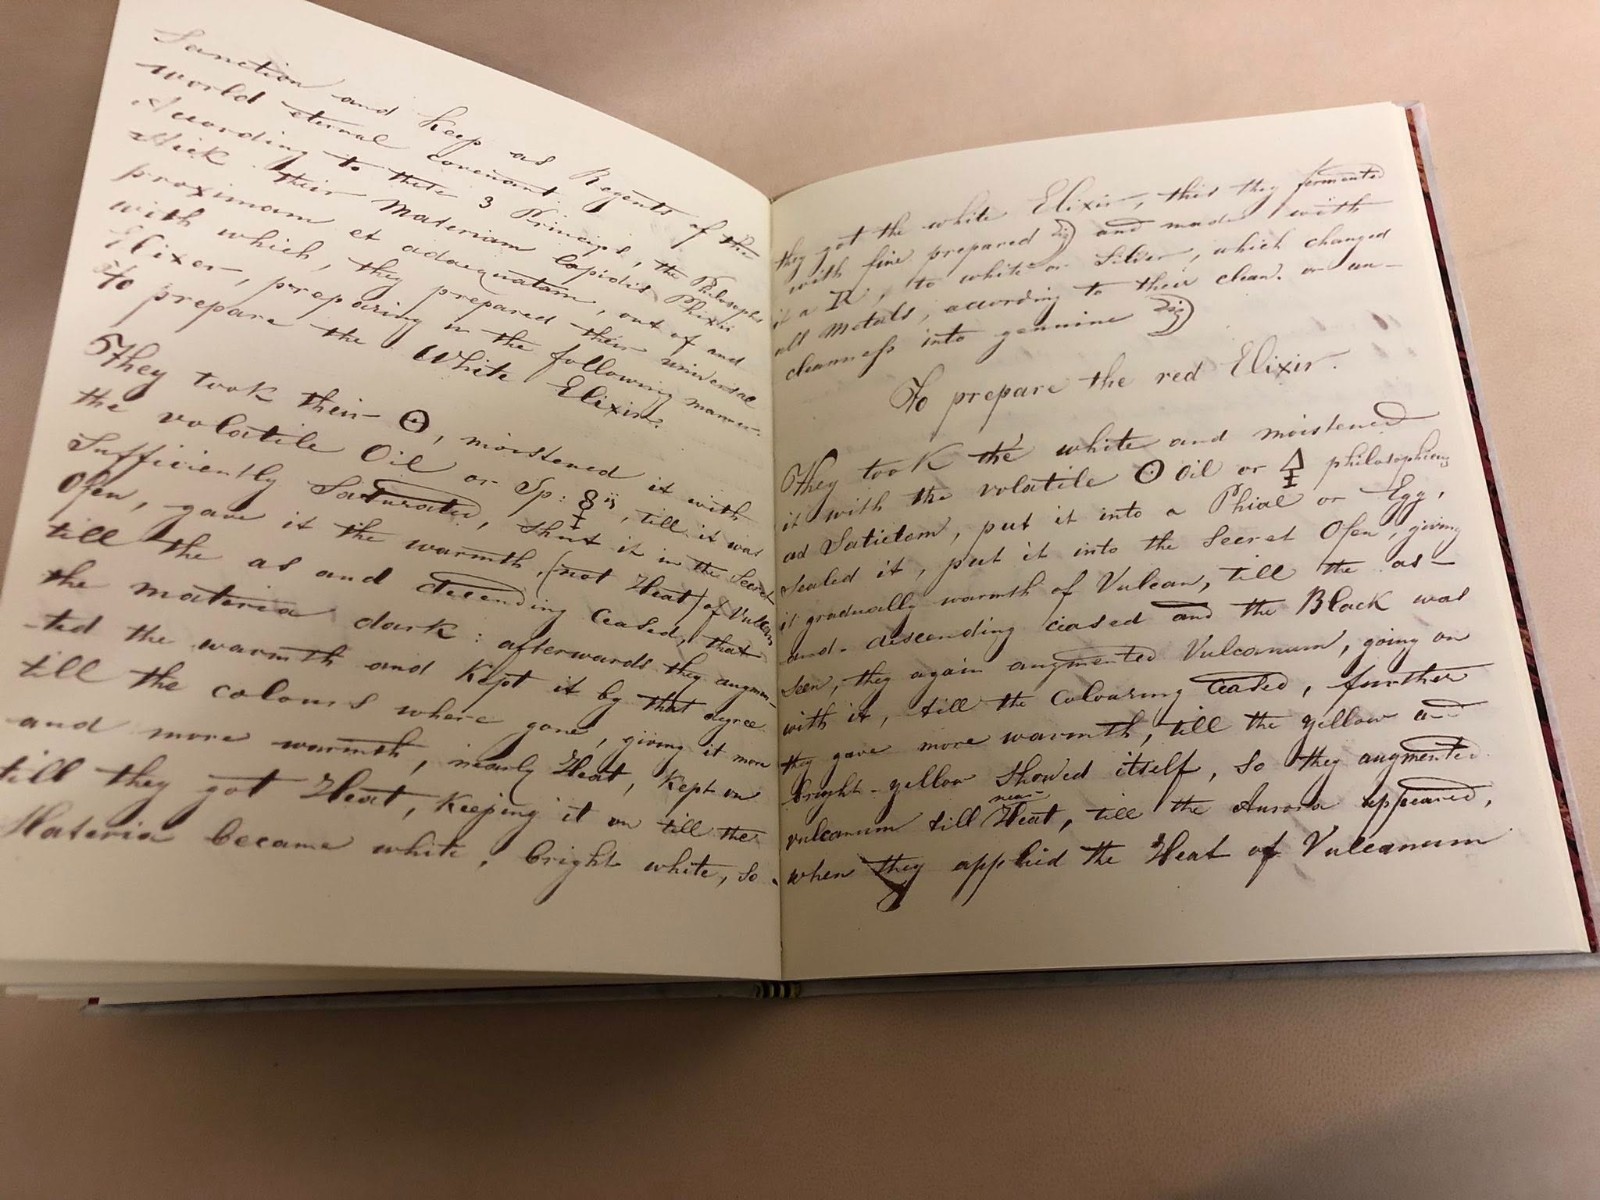 Sanction and Keep as Regents of the
world eternal covenant.
According to these 3 Principis, the Philosophs
Stick their Materiam lapidis Phixii
proximam et adaequatam, out of and
with which, they prepared their universal
Elixer, preparing in the following manner.
To prepare the White Elixir.
They took their ☉, moistened it with
the volatile Oil or Sp: ☿ii, till it was
Sufficiently Saturated, Shut it in the Secret
Ofen, gave it the warmth, (not Heat) of Vulcan
till the as and descending Ceased, that
the materia dark: afterwards they augmen-
-ted the warmth and Kept it by that degree
till the colours where gone, giving it more
and more warmth, nearly Heat, Kept on
till they got Heat, Keeping it on till the
Materia became white, bright white, so
they got the white Elixir, this they fermented
with fine prepared ☽ and made with
it a , to white or Silver, which changed
all Metals, according to their clean. or un-
cleanness into genuine ☽
To prepare the red Elixir.
They took the white and moistened
it with the volatile ☉ Oil or 🜍 philosophicus
ad Satietam, put it into a Phial or Egg,
Sealed it, put it into the Secret Ofen, giving
it gradually warmth of Vulcan, till the as-
and-descending ceased and the Black was
seen, they again augmented Vulcanum, going on
with it, till the Colouring Ceased, further
they gave more warmth, till the yellow and
bright-yellow Showed itself, So they augmented
vulcanum till near Heat, till the Aurora appeared,
when they applied the Heat of Vulcanum